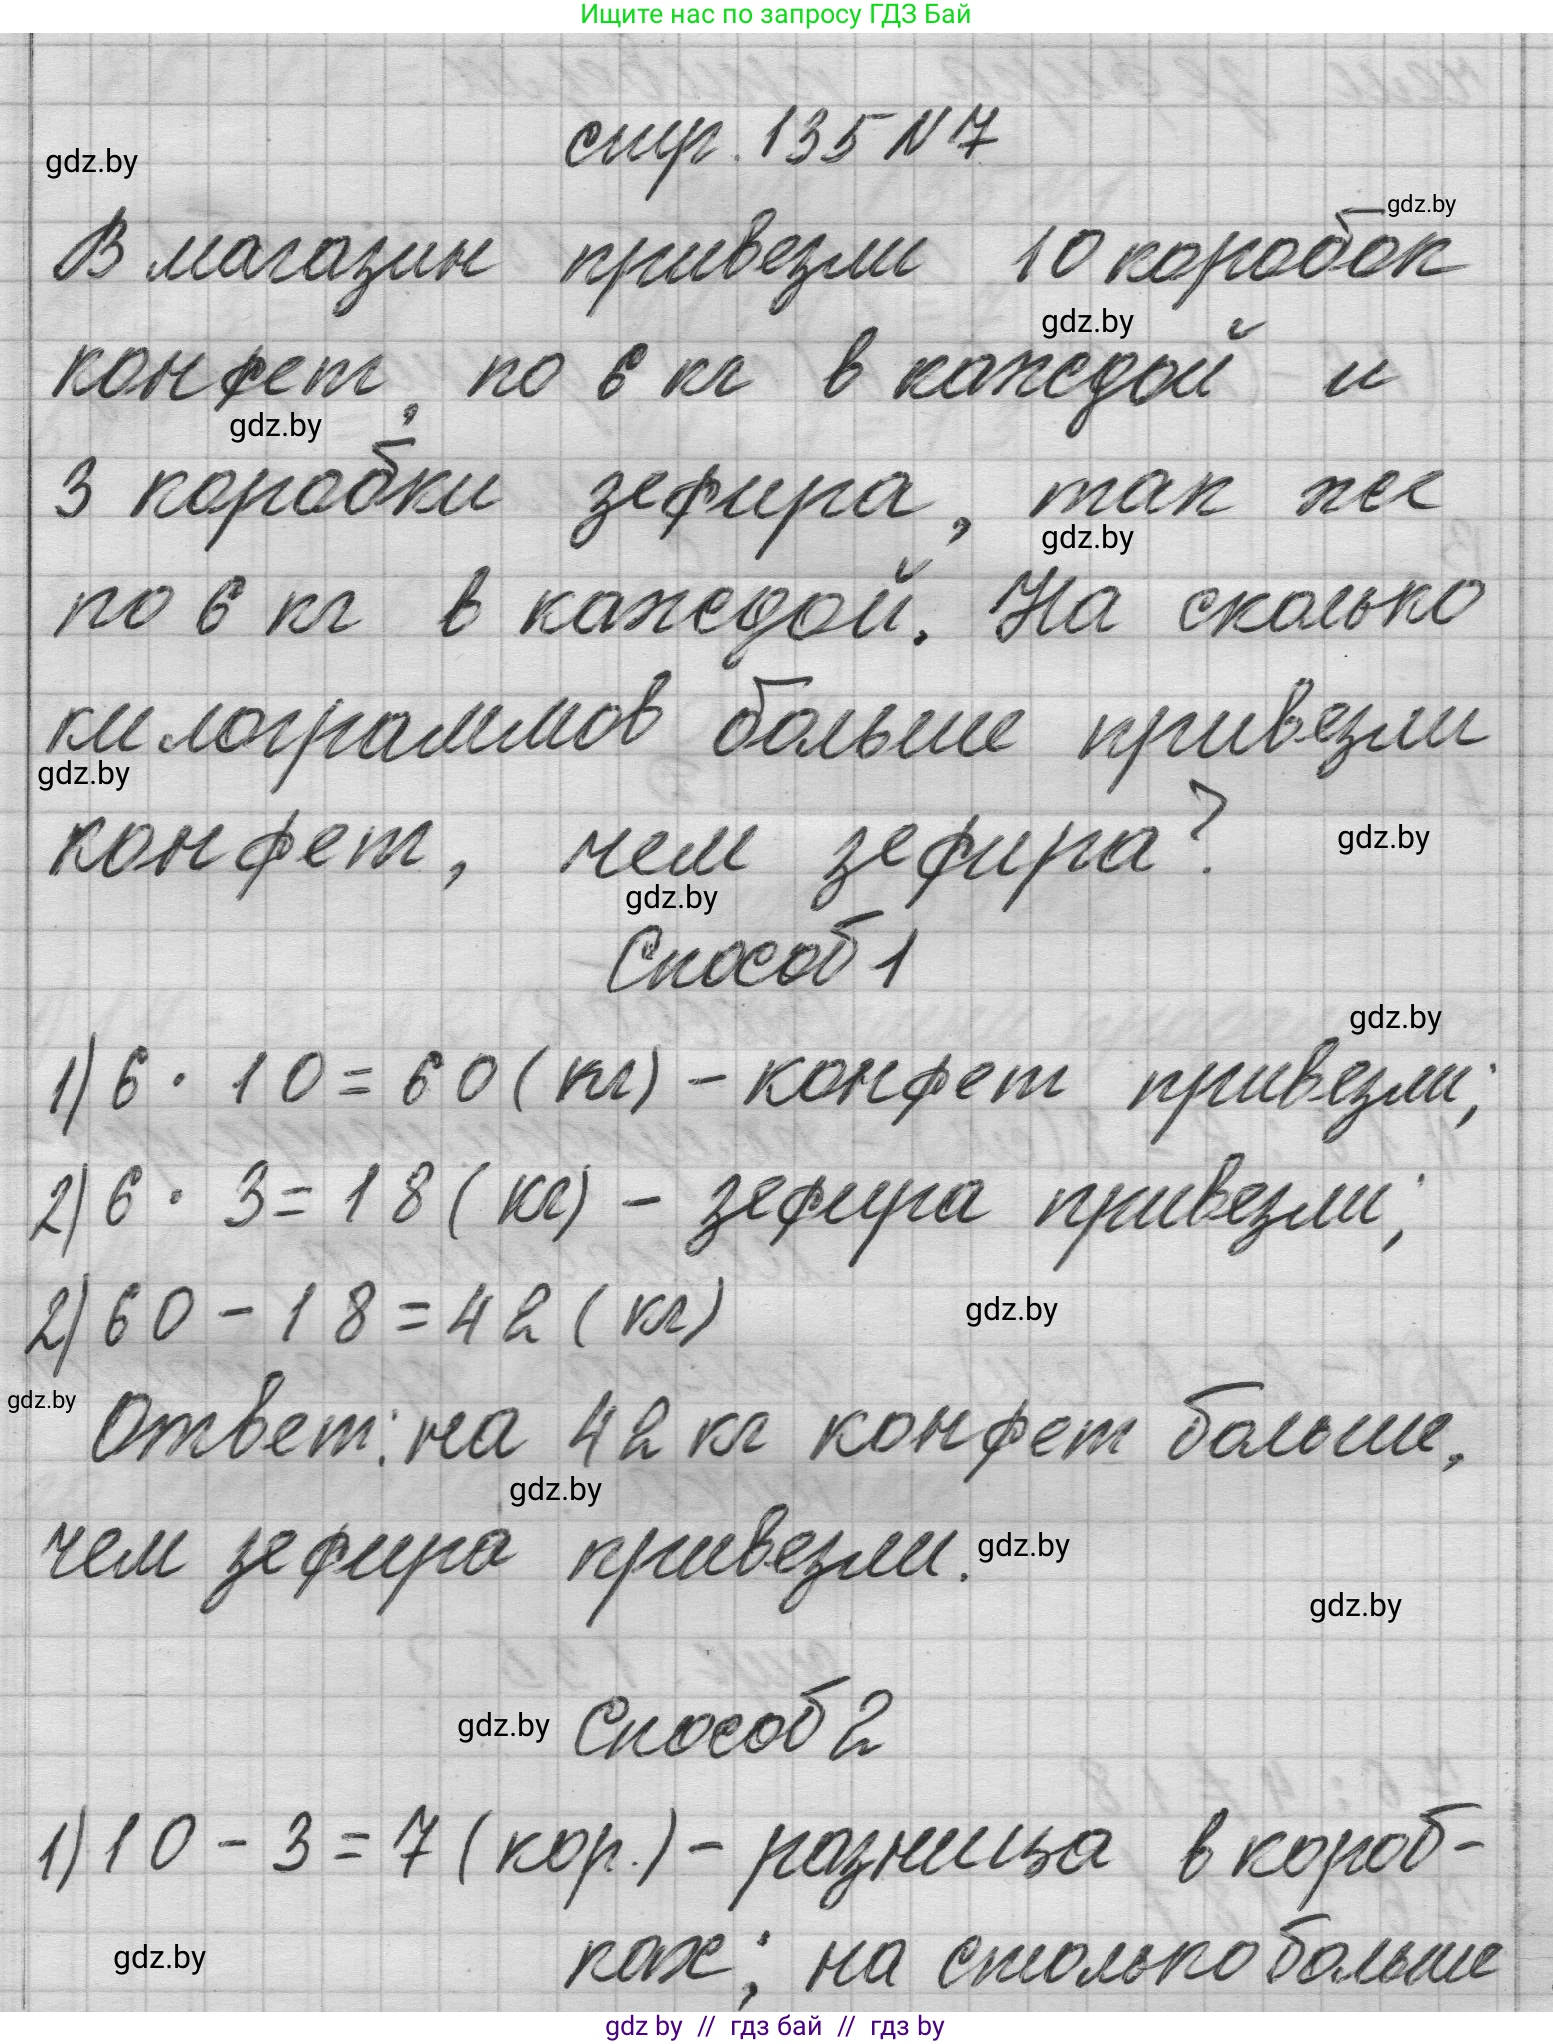 Ищите нас по запросу ГДЗ Бай
стр. 135 N 7
gdz.by
gdz.by
В магазин привезли 10 коробок
gdz.by
конфет, по 6 кг в каждой и
gdz.by
3 коробки зефира, так же
gdz.by
по 6 кг в каждой. На сколько
килограммов больше привезли
gdz.by
конфет, чем зефира?
gdz.by
gdz.by
Способ 1
gdz.by
1) 6 · 10 = 60 (кг) – конфет привезли;
2) 6 · 3 = 18 (кг) – зефира привезли;
2) 60 – 18 = 42 (кг)
gdz.by
gdz.by
Ответ: на 42 кг конфет больше,
gdz.by
чем зефира привезли.
gdz.by
gdz.by
gdz.by
Способ 2
1) 10 – 3 = 7 (кор.) – разница в короб-
ках; на столько больше
gdz.by
gdz by // гдз бай // гдз by